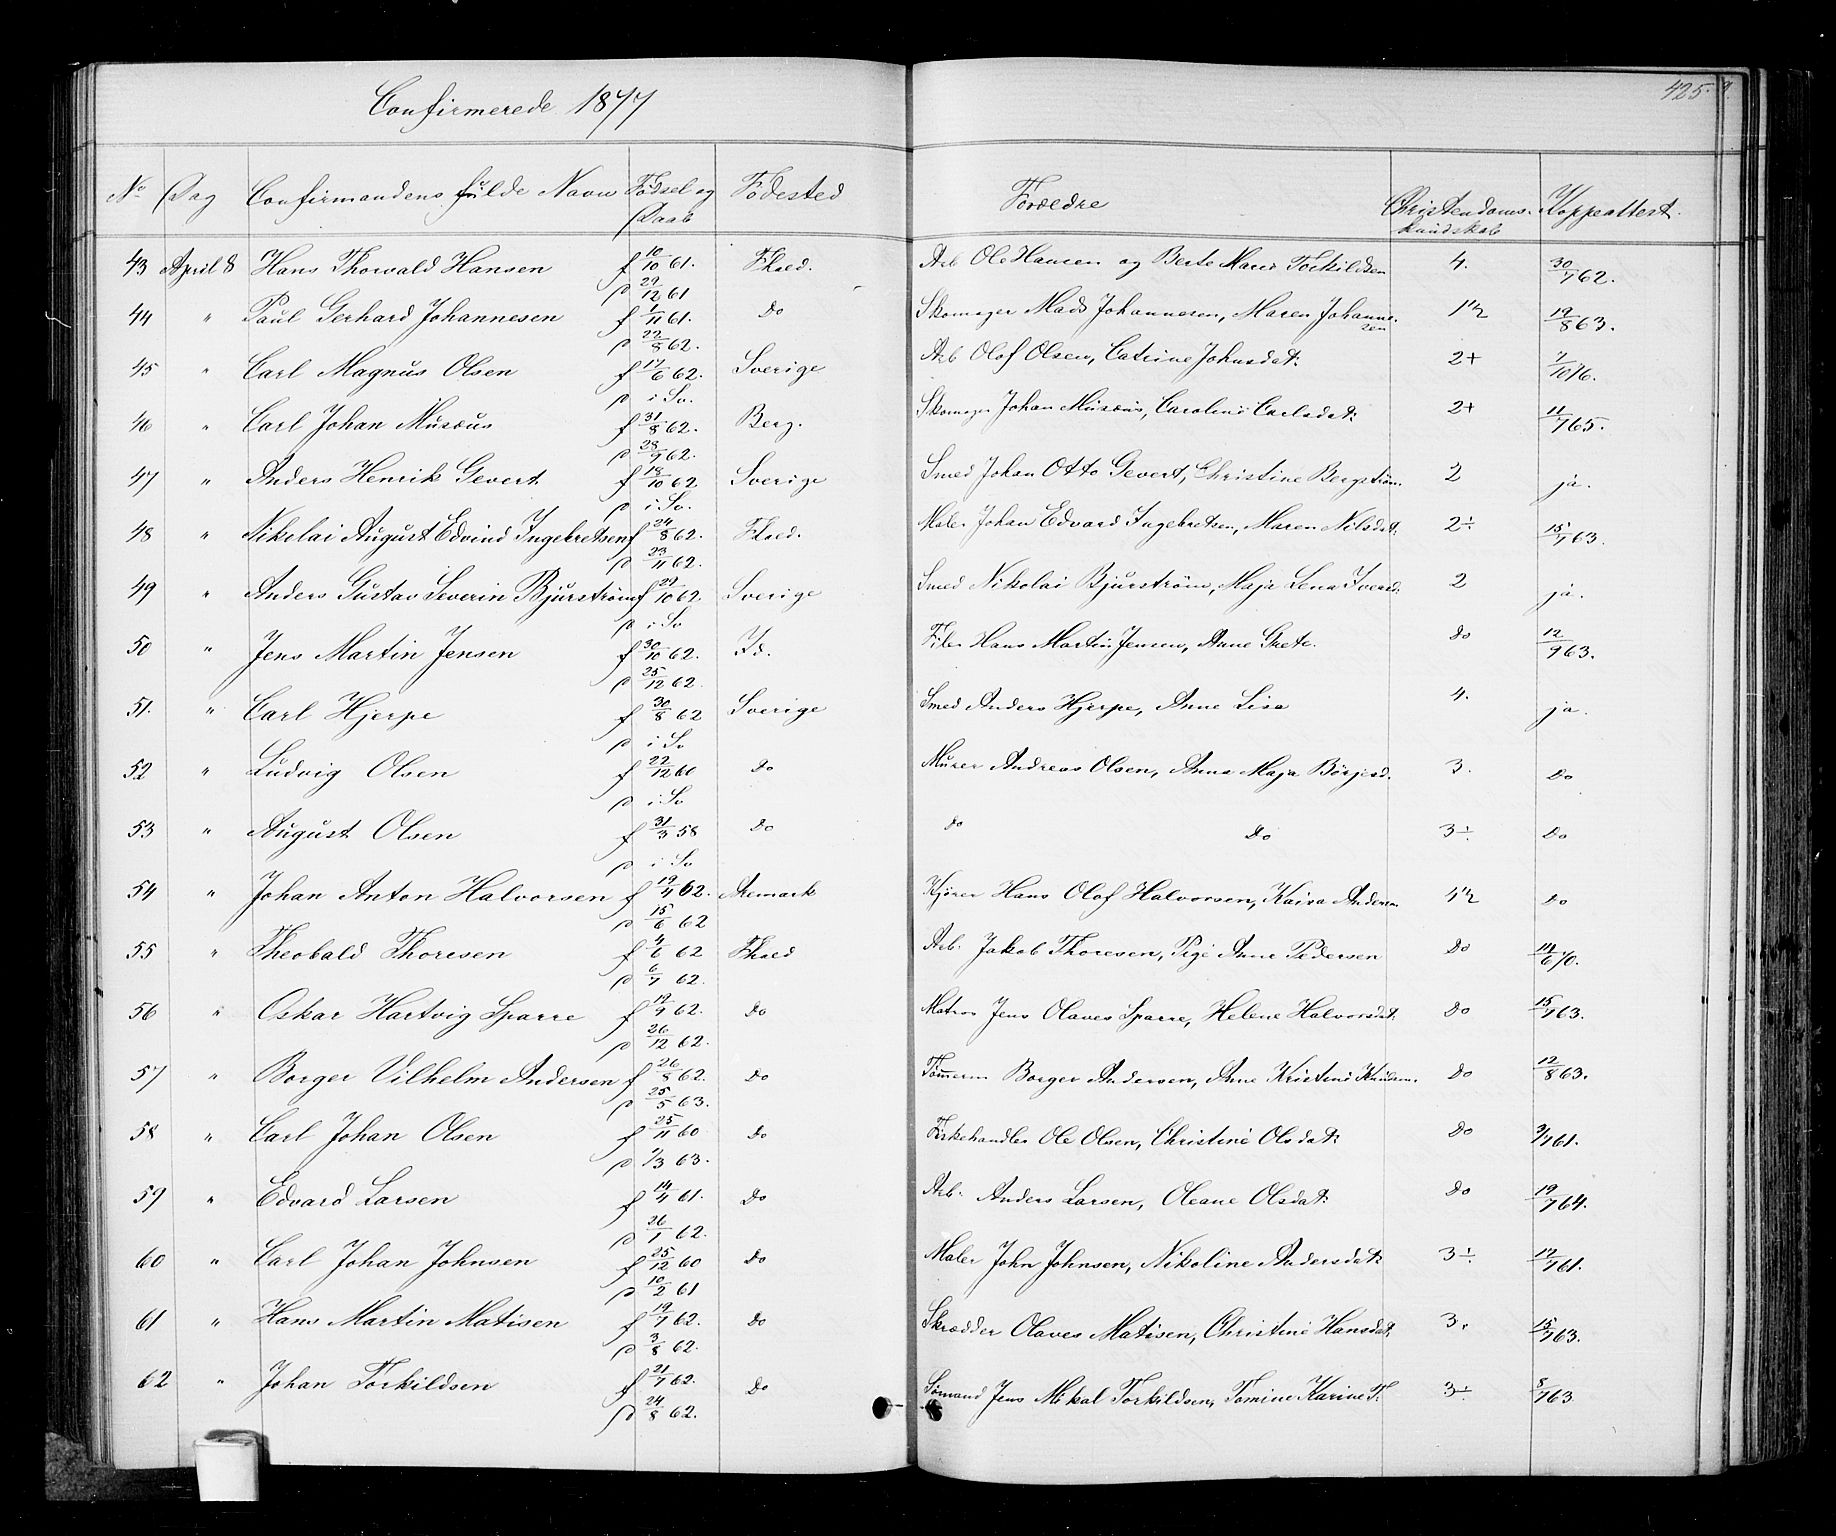 Confirmerede 1877
425.
No Dag Confirmandens fulde Navn Fødsel og Daab Fødested Forældre Christendoms-kundskab Koppeattest.
43 April 8 Hans Thorvald Hansen f 10/10 61. Fhald. Arb Ole Hansen og Berte Marie Torkildsen 4. 30/7 62.
d 29/12 61
44 " Paul Gerhard Johannesen f 1/11 61. Do Skomager Mads Johannesen, Maren Johannesen 1½ 19/8 63.
d 22/8 62.
45 " Carl Magnus Olsen f 17/6 62. Sverige Arb Olof Olsen, Catrine Johnsdat: 2+ 7/10 76.
d i Sv.
46 " Carl Johan Musæus f 31/8 62. Berg. Skomager Johan Musæus, Caroline Carlsdat: 2+ 11/7 65.
d 28/9 62.
47 " Anders Henrik Gevert f 18/10 62. Sverige Smed Johan Otto Gevert, Christine Bergstrøm. 2 ja.
d i Sv.
48 " Nikolai August Edvind Ingebretsen f 24/8 62. Fhald. Maler Johan Edvard Ingebretsen, Maren Nilsdat: 2÷ 15/7 63.
d 23/11 62.
49 " Anders Gustav Severin Bjurstrøm f 29/10 62. Sverige Smed Nikolai Bjurstrøm, Maja Lena Iversd: 2 ja.
d i Sv
50 " Jens Martin Jensen f 30/10 62. Id. Filer Hans Martin Jensen, Anne Grete. Do 12/9 63.
d 25/12 62.
51. " Carl Hjerpe f 30/8 62 Sverige Smed Anders Hjerpe, Anne Lisa 4. ja.
d i Sv
52 " Ludvig Olsen f 22/12 60 Do Murer Andreas Olsen, Anna Maja Börjesd. 3. Do
d i Sv
53 " August Olsen f 31/3 58 Do Do Do 3÷ Do
d i Sv
54 " Johan Anton Halvorsen f 19/4 62. Aremark Kjører Hans Olof Halvorsen, Kaisa Andersen 4½ Do
d 15/6 62
55 " Theobald Thoresen f 4/6 62 Fhald Arb. Jakob Thoresen, Pige Anne Pedersen Do 14/6 70.
d 6/7 62.
56 " Oskar Hartvig Sparre f 19/9 62. Do Matros Jens Olaves Sparre, Helene Halvorsdat: Do 15/7 63.
d 26/12 62.
57 " Borger Vilhelm Andersen f 26/8 62. Do Tømmerm Borger Andersen, Anne Kristine Knudsen. Do 12/8 63.
d 25/5 63.
58 " Carl Johan Olsen f 25/11 60 Do Fiskehandler Ole Olsen, Christine Olsdat: Do 3/7 61.
d 1/3 63.
59 " Edvard Larsen f 14/4 61. Do Arb. Anders Larsen, Oleane Olsdat: Do 19/7 64.
d 26/1 62.
60 " Carl Johan Johnsen f 25/12 60 Do Maler John Johnsen, Nikoline Andersdat: 3÷ 17/7 61.
d 10/2 61
61 " Hans Martin Matisen f 19/7 62. Do Skrædder Olaves Matisen, Christine Hansdat. 3. 15/7 63.
d 3/8 62.
62 " Johan Torkildsen f 21/7 62. Do Sømand Jens Mikal Torkildsen, Tomine Karine T. 3÷ 8/7 63
d 24/8 62.